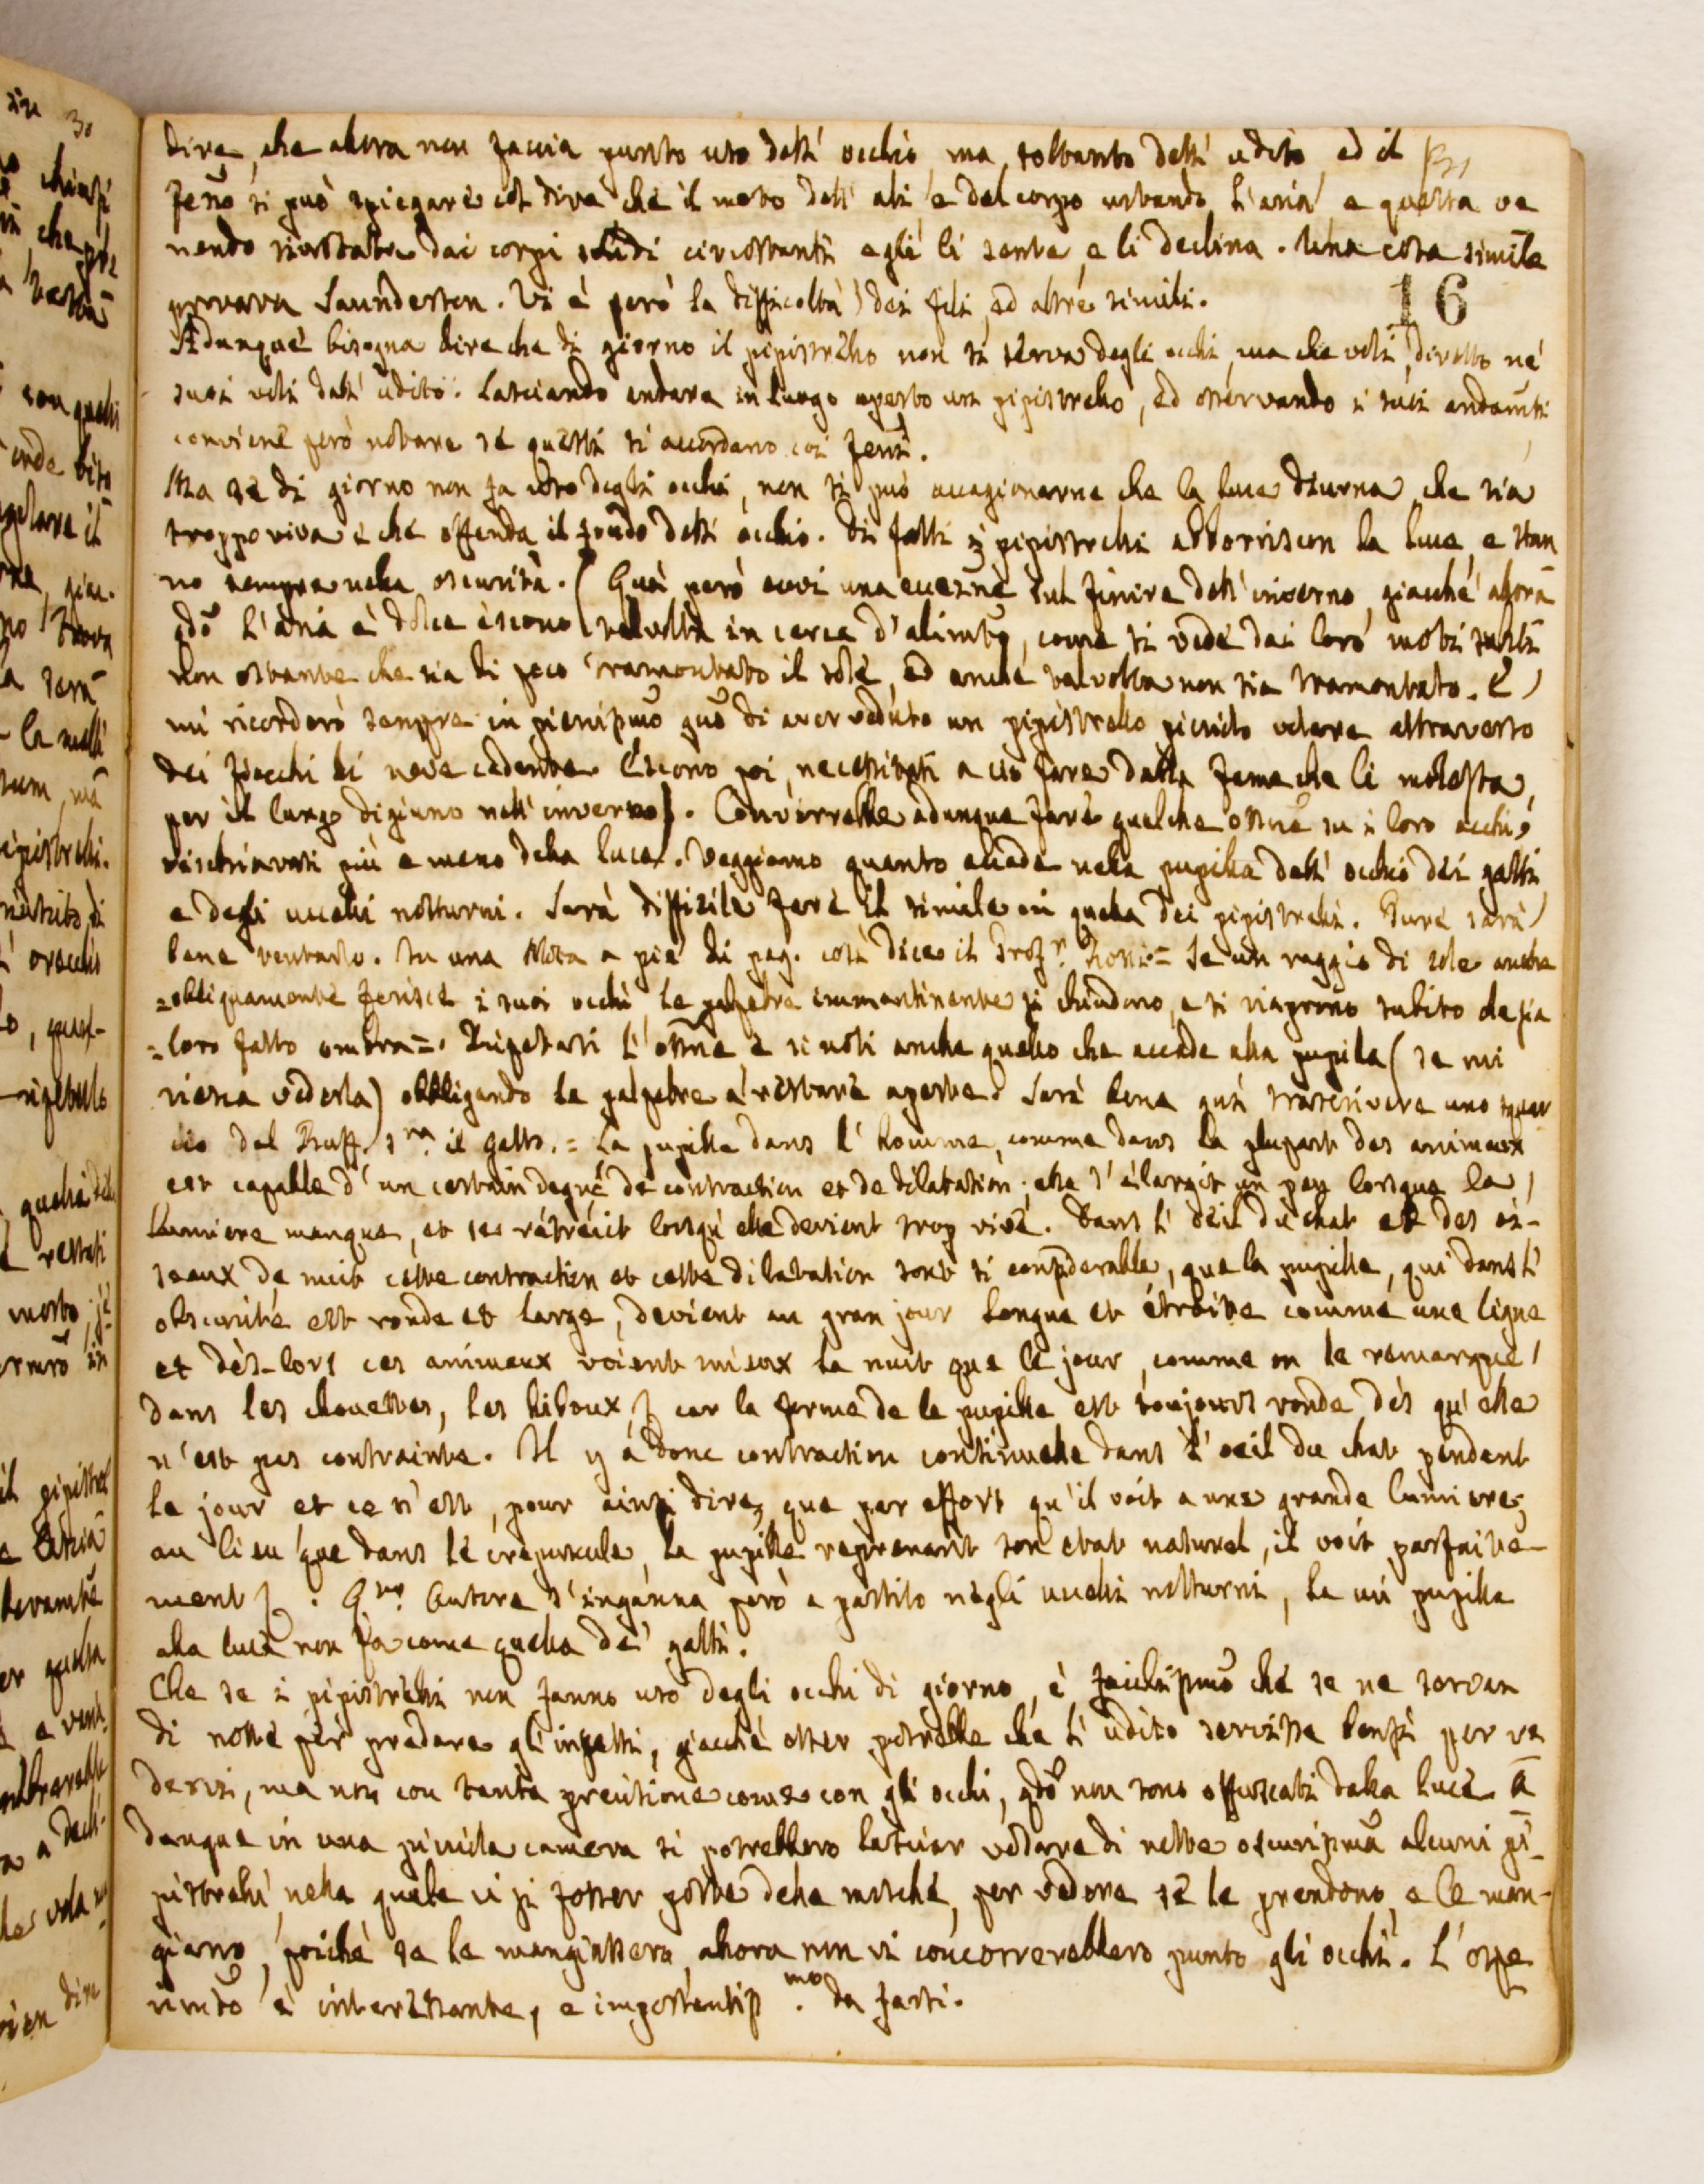 dire, che allora non faccia punto uso dell' occhio, ma soltanto dell' udito, ed il
fenō si può spiegare col dire che il moto dell' ali e del corpo urtando l'aria, e questa ve
nendo riurtata dai corpi solidi circostanti egli li sente, e li declina. Una cosa simile
provava Saunderson. Vi è però la difficoltà dei fili, ed altre simili.
16
Adunque bisogna dire che di giorno il pipistrello non si serva degli occhi, ma che voli, diretto ne'
suoi voli dall' udito. Lasciando andare in luogo aperto un pipistrello, ed osservando i suoi andamti
conviene però notare se questi si accordano coi feni.
Ma se di giorno non fa uso degli occhi, non si può accagionarne che la luce diurna, che sia
troppo viva e che offenda il fondo dell' occhio. Di fatti i pipistrelli abborriscon la luce, e stan
no sempre nella oscurità. (Quà però avvi una eccezne sul finire dell' inverno, giacché allora
qdō l'aria è dolce escono talvolta in cerca d'alimto, come si vede dai loro moti
non ostante che sia di poco tramontato il sole, ed anche talvolta non sia tramontato. E
mi ricorderò sempre in pienissmo gno di aver veduto un pipistrello piccolo volare attraverso
dei fiocchi di neve cadente. Escono poi, necessitati a ciò fare dalla fame che li molesta,
per il lungo digiuno nell' inverno). Converrebbe adunque fare qualche ossne su i loro occhi,
rischiarati più e meno dalla luce. Veggiamo quanto accade nella pupilla dell' occhio dei gatti
e degli uccelli notturni. Sarà difficile fare il simile in quella dei pipistrelli. Pure sarà
bene tentarlo. In una Nota a piè di pag. così dice il Profr. Rossi = Se un raggio di sole anche
= obliquamente ferisce i suoi occhi, le palpebre immantinente si chiudono, e si riaprono subito che sia
= loro fatto ombra =. Ripetasi l'ossne e si noti anche quello che accade alla pupilla (se mi
riesca vederla) obbligando le palpebre a restare aperte. Sarà bene quì trascrivere uno squar
cio del Buff. sra il gatto. = La pupille dans l' homme, comme dans la plupart des animaux
est capable d' un certain degré de contraction et de dilatation; elle s' élargit un peu lorsque la
lumiere manque, et se rétrécit lorsqu' elle devient trop vive. Dans l' oeil du chat et des oi-
seaux de nuit cette contraction et cette dilatation sont si considerable, que la pupille, qui dans l'
obscurité est ronde et large, devient au gran jour longue et étroite comme une ligne
et dès-lors ces animaux voient mieux la nuit que le jour, comme on le remarque
dans les chouettes, les hiboux, car la forme de la pupille est toujours ronde dès qu' elle
n'est pas contrainte. Il y a donc contraction continuelle dans l' oeil du chat pendent
le jour et ce n'est, pour ainsi dire, que par effort qu'il voit a une grande lumiere;
au lieu que dans le crepuscule, la pupille reprenant son etat naturel, il voit parfaite-
ment. Qto Autore s'inganna però a partito negli uccelli notturni, la cui pupilla
alla luce non fa come quella de' gatti.
Che se i pipistrelli non fanno uso degli occhi di giorno, è facilissmo che se ne servan
di notte per predare gli insetti, giacché esser potrebbe che l' udito servisse bensì per ve
dervi, ma non con tanta precisione come con gli occhi, qdō non sono offuscati dalla luce. A
dunque in una piccola camera si potrebbero lasciar volare di notte oscurissma alcuni pi-
pistrelli, nella quale vi si fosser poste delle mosche, per vedere se le prendono, e le man-
giano, poiché se le mangiassero, allora non vi concorrerebbero punto gli occhi. L' espe
rimto è interessante, e importantiss.mo da farsi.